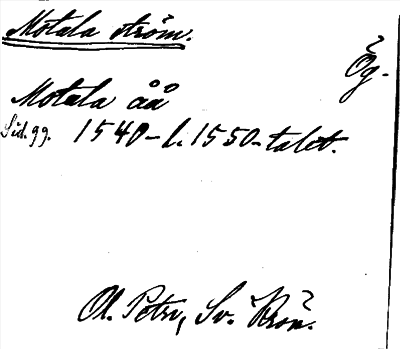 Motala ström.
Ög.
Motala åå
Sid. 99. 1540- l. 1550-talet.
Ol. Petri, Sv. Krön.